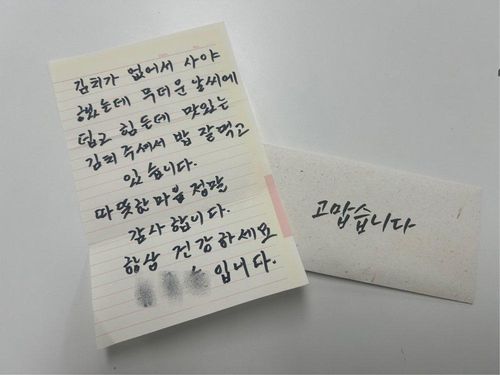 김치가 없어서 사야
했는데 무더운 날씨에
덥고 힘든데 맛있는
김치 주셔서 밥 잘먹고
있습니다.
따뜻한 마음 정말
감사합니다.
항상 건강하세요
입니다.
고맙습니다